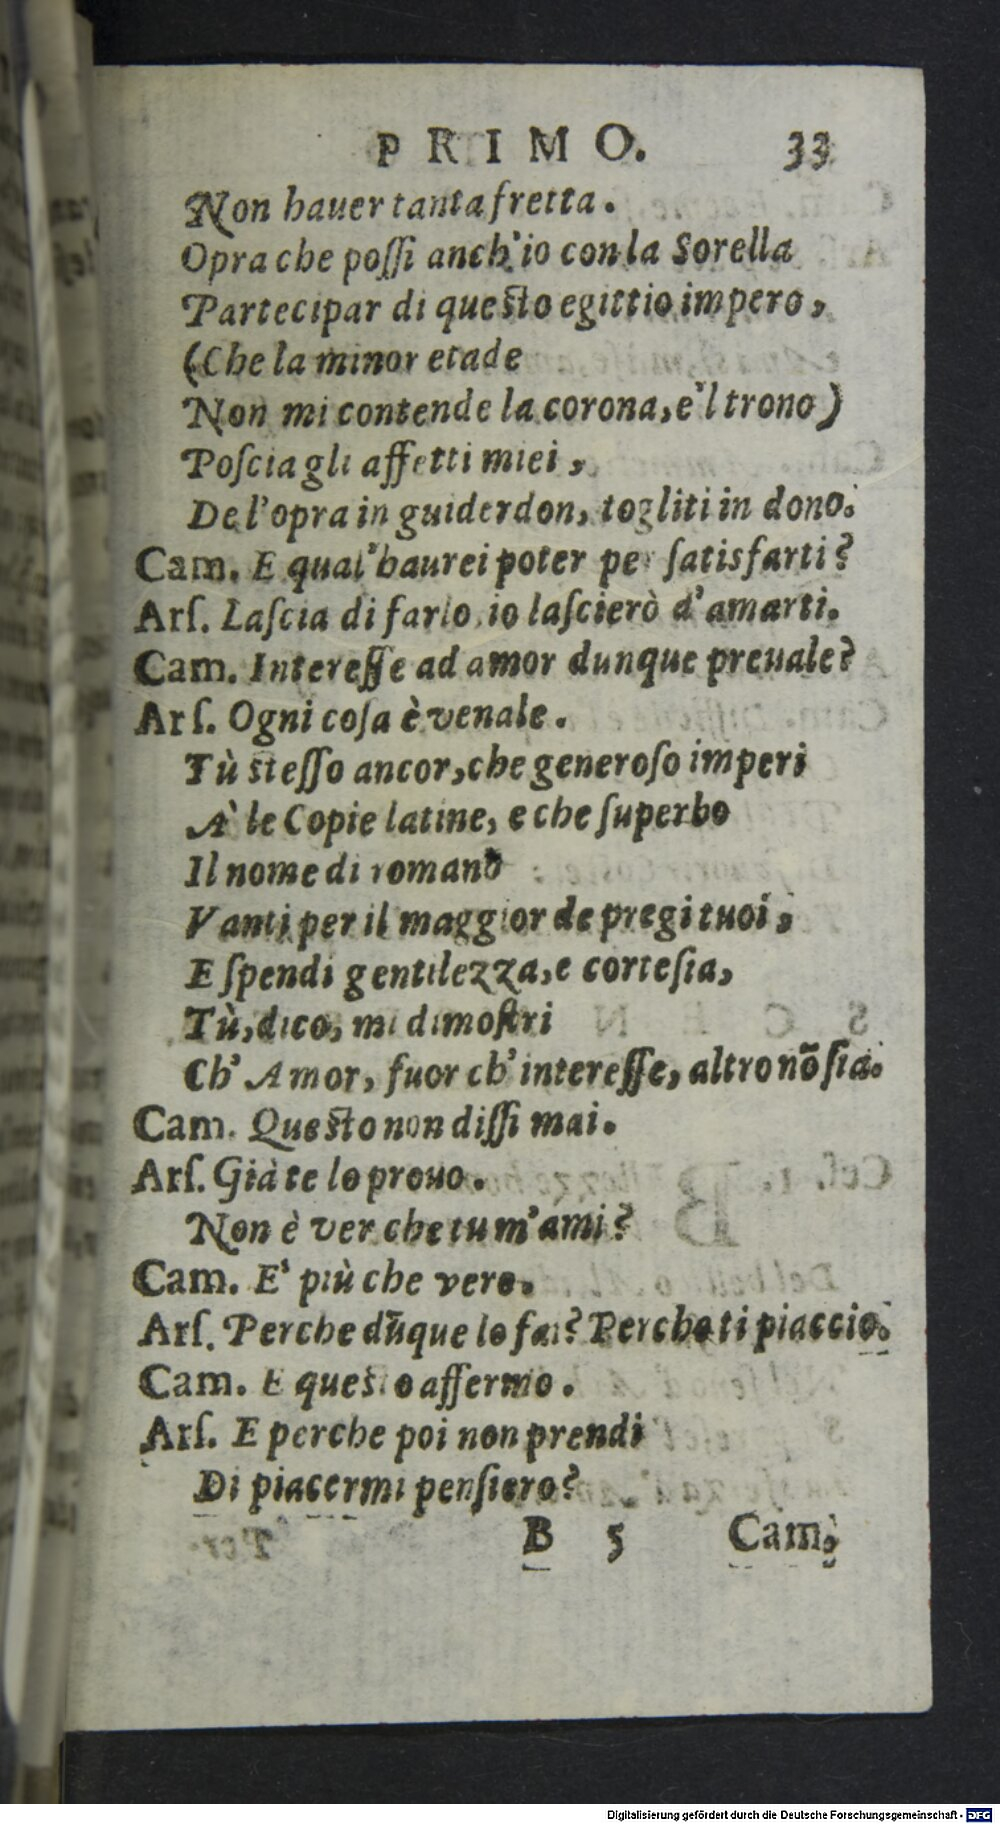 PRIMO. 33
Non hauer tanta fretta.
Opra che poſſi anch'io con la Sorella
Partecipar di queſto egittio impero,
(Che la minor etade
Non mi contende la corona, e'l trono)
Poſcia gli affetti miei,
De l'opra in guiderdon, togliti in dono.
Cam. E qual' haurei poter per ſatisfarti?
Arſ. Laſcia di farlo, io laſcierò d'amarti.
Cam. Intereſſe ad amor dunque preuale?
Arſ. Ogni coſa è venale.
Tù ſteſſo ancor, che generoſo imperi
À le Copie latine, e che ſuperbo
Il nome di romano
Vanti per il maggior de pregi tuoi,
E ſpendi gentilezza, e corteſia,
Tù, dico, mi dimoſtri
Ch' Amor, fuor ch' intereſſe, altro nõ ſia.
Cam. Queſto non diſſi mai.
Arſ. Già te lo prouo.
Non è ver che tu m'ami?
Cam. E' più che vero.
Arſ. Perche dũque lo fai? Perche ti piaccio.
Cam. E queſto affermo.
Arſ. E perche poi non prendi
Di piacermi penſiero?
B 5 Cam,
Digitalisierung gefördert durch die Deutsche Forschungsgemeinschaft - DFG